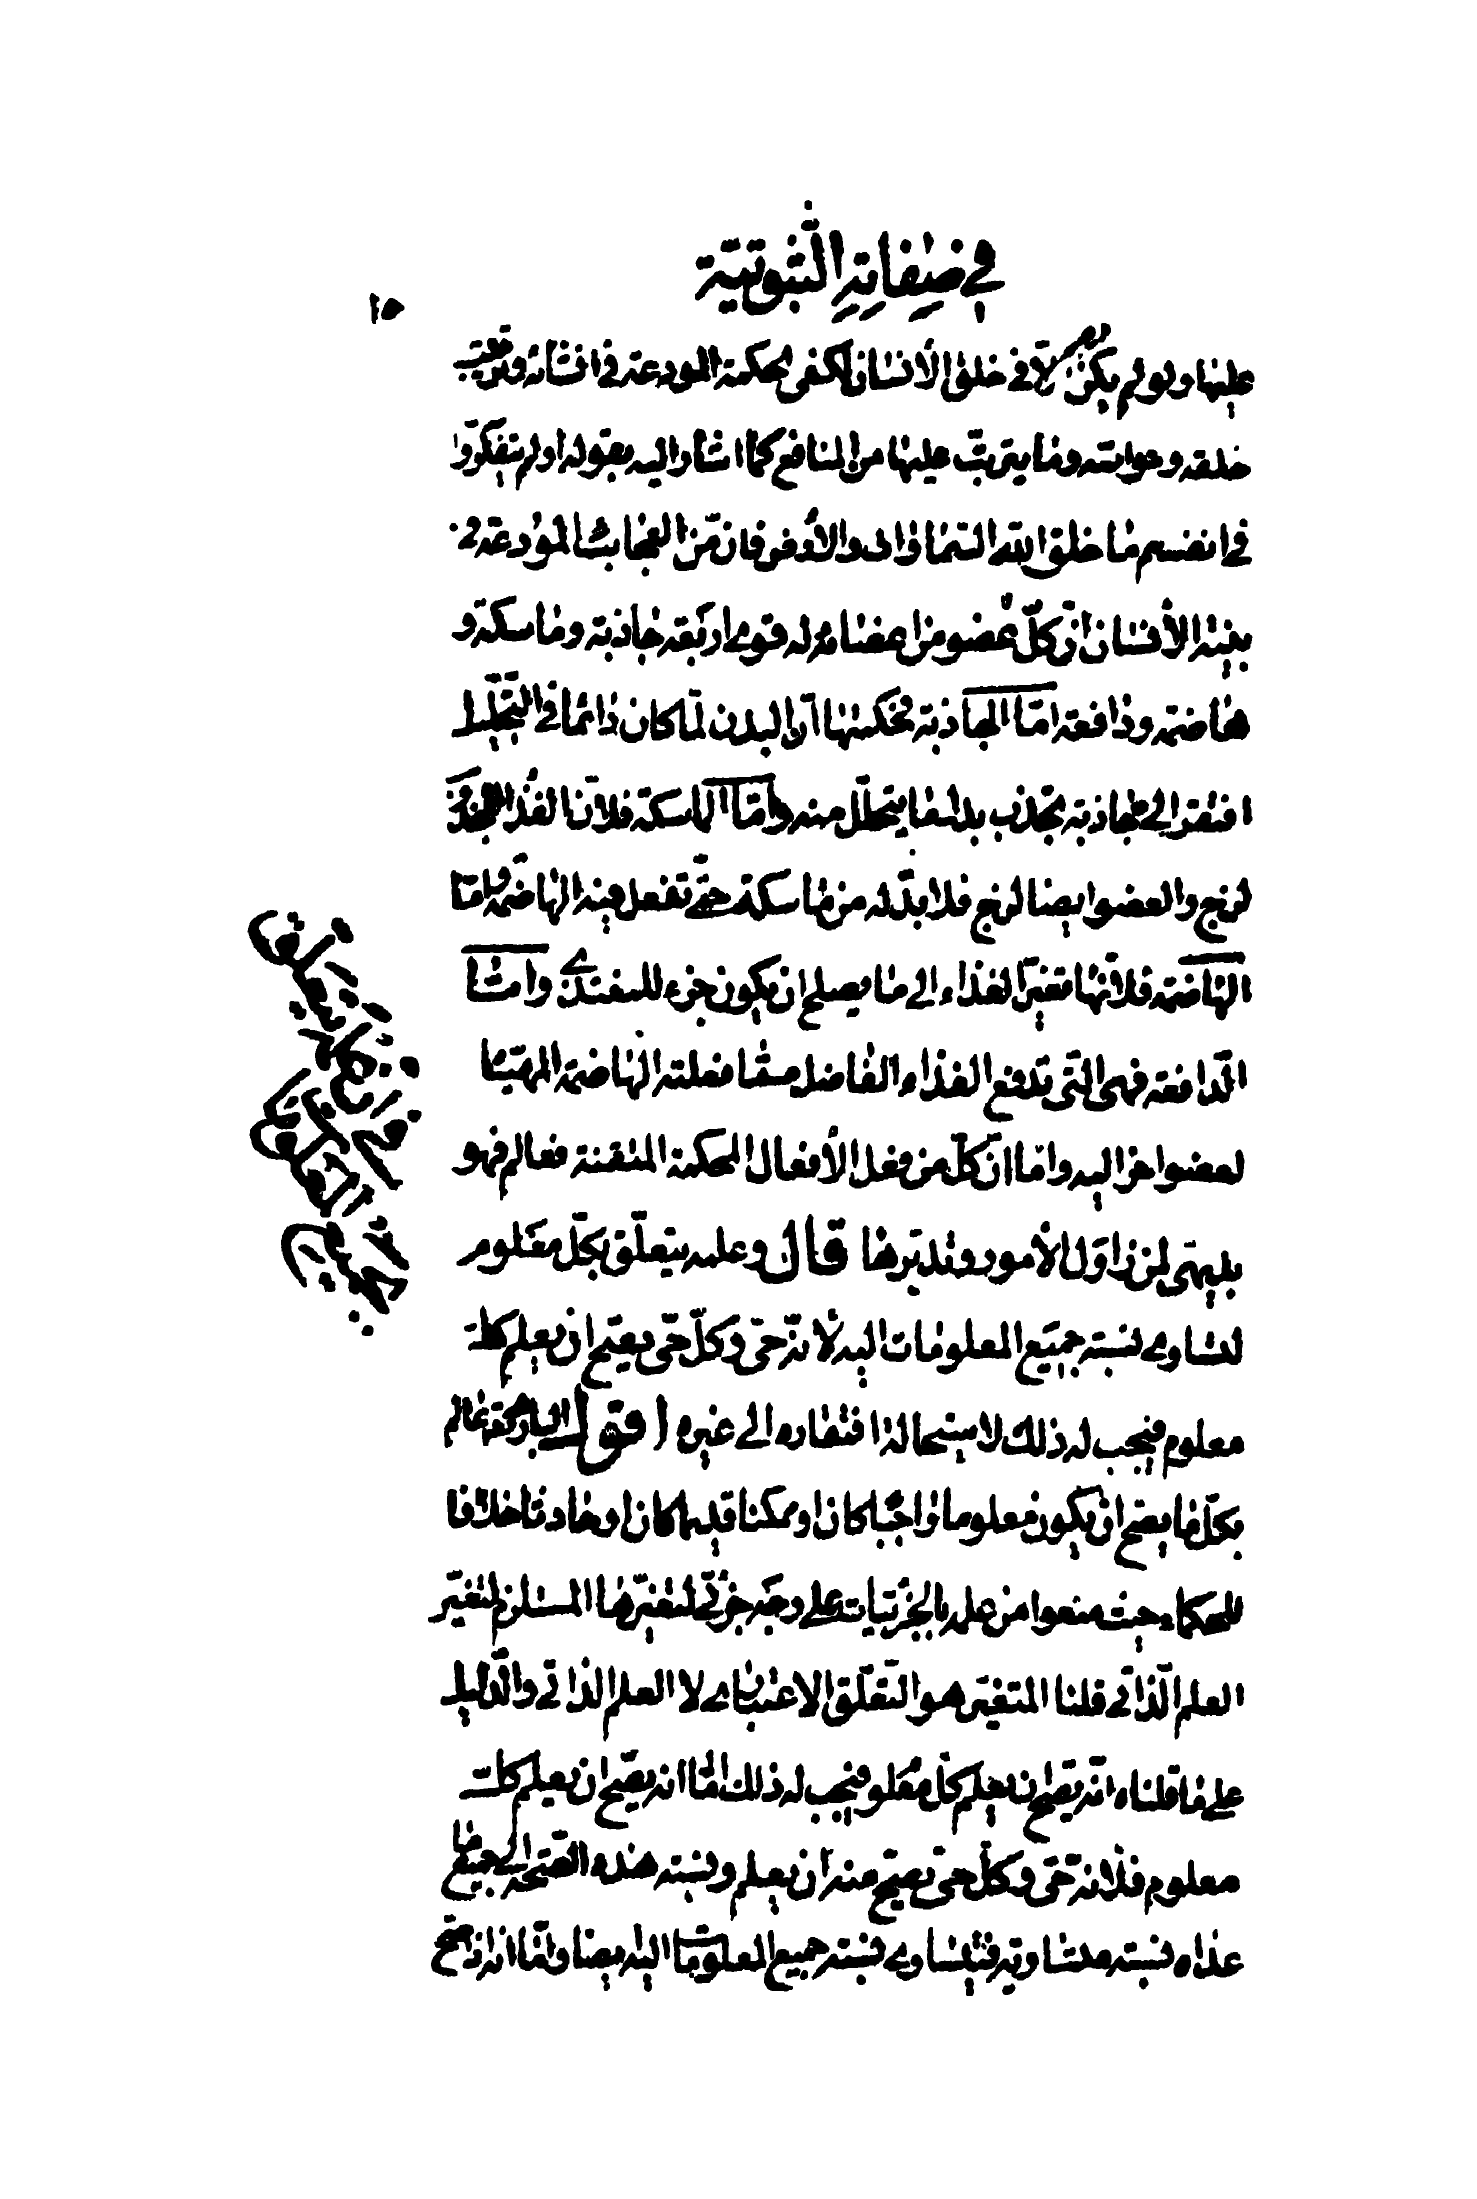 في صفاته الثبوتية
١٥
عليها ولو لم يكن الا في خلق الانسان لكفى الحكمة المودعة في انشائه وترتيب
خلقه وحواسه وما يترتب عليها من المنافع كما اشار اليه بقوله اولم يتفكروا
في انفسهم ما خلق الله السماوات والارض فان من العجائب المودعة في
بنية الانسان ان كل عضو من اعضائه له قوى اربعة جاذبة وماسكة و
هاضمة ودافعة اما الجاذبة فحكمتها ان البدن لما كان دائما في التحليل
افتقر الى جاذبة تجذب بدل ما يتحلل منه واما الماسكة فلان الغذاء
لزج والعضو ايضا لزج فلا بد له من ماسكة حتى تفعل فيه الهاضمة واما
الهاضمة فلانها تغير الغذاء الى ما يصلح ان يكون جزء للمغتذى واما
الدافعة فهى التى تدفع الغذاء الفاضل مما فعلته الهاضمة المهيئا
لعضو اخر اليه واما ان كل من فعل الافعال المحكمة المتقنة فعالم فهو
بديهى لمن زاول الامور وتدبرها قال وعلمه يتعلق بكل معلوم
لتساوى نسبة جميع المعلومات اليه لانه حى وكل حى يصح ان يعلم كل
معلوم فيجب له ذلك لاستحالة افتقاره الى غيره اقول البارى تعالى عالم
بكل ما يصح ان يكون معلوما واجبا كان او ممكنا قديما كان او حادثا خلافا
للحكماء حيث منعوا من علمه بالجزئيات على وجه جزئي لتغيرها المستلزم لتغير
العلم الذاتي قلنا المتغير هو التعلق الاعتبارى لا العلم الذاتي والدليل
على ما قلناه انه يصح ان يعلم كل معلوم فيجب له ذلك اما انه يصح ان يعلم كل
معلوم فلانه حى وكل حى يصح منه ان يعلم ونسبة هذه الصحة الى جميع ما
عداه نسبة متساوية فتتساوى نسبة جميع المعلومات اليه ايضا واما انه اذا صح